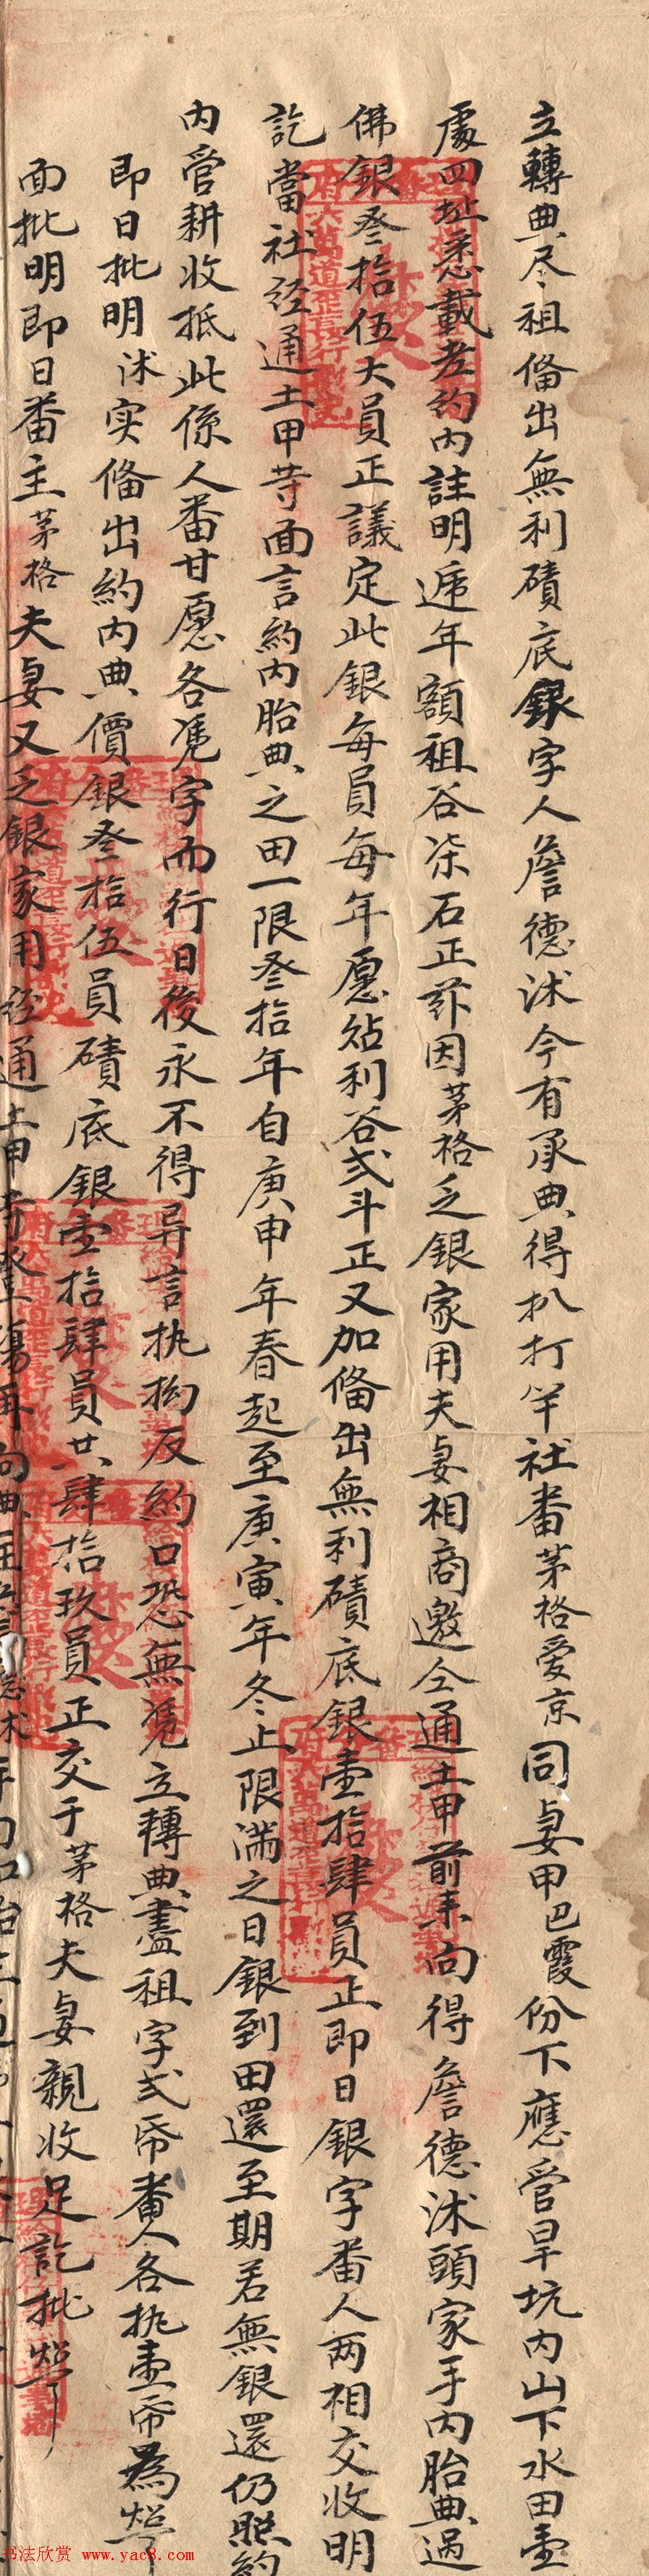 立轉典尽租俻出無利磧底銀字人詹德沭今有承典得扒打牟社番茅格爱京同妻甲巴霞份下應管旱坑内山下水田壹
處四址悉載老約内註明逓年額租谷柒石正兹因茅格乏銀家用夫妻相商邀仝通土甲前来向得詹德沭頭家手内胎典過
佛銀叁拾伍大員正議定此銀每員每年愿贴利谷弍斗正又加俻出無利磧底銀壹拾肆員正即日銀字番人两相交收明
訖當社経通土甲䓁面言約内胎典之田一限叁拾年自庚申年春起至庚寅年冬止限满之日銀到田還至期若無銀還仍照約
内管耕收抵此係人番甘愿各凭字而行日後永不得异言执拗反約口恐無凭立轉典盡租字弍帋畨人各执壹帋為炤
即日批明沭实俻出約内典價銀叁拾伍員磧底銀壹拾肆員共肆拾玖員正交于茅格夫妻親收足訖批炤
面批明即日番主茅格夫妻又乏銀家用経通土甲䓁
書法欣赏 www.yac8.com